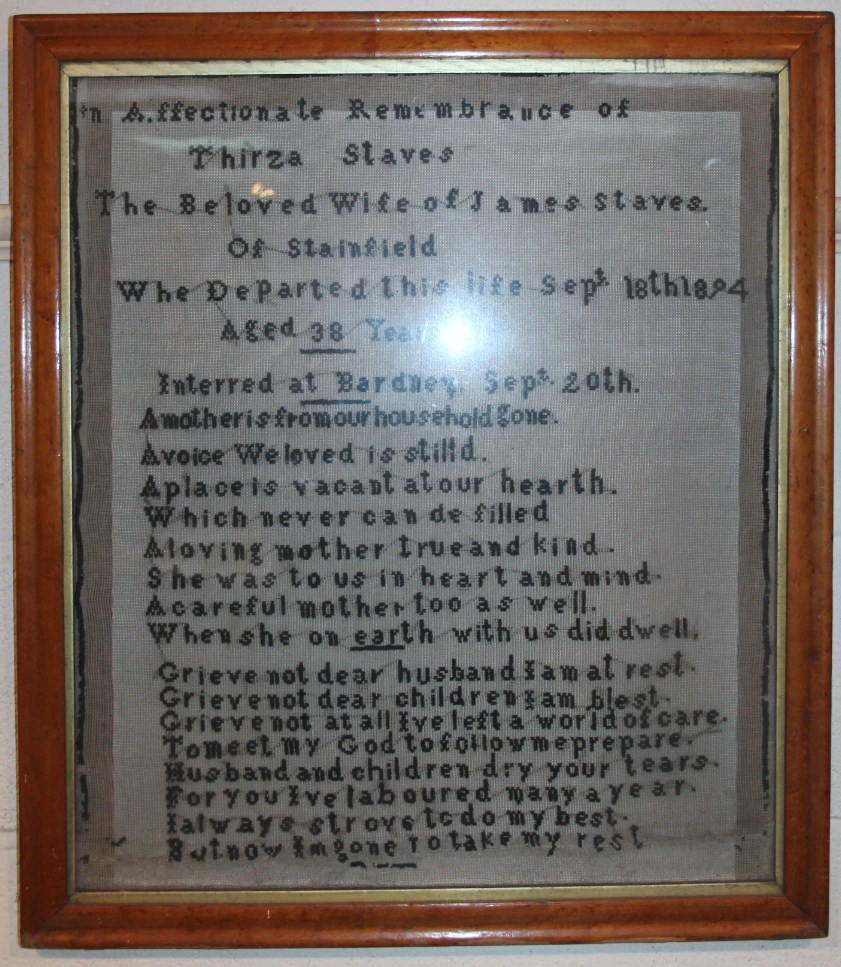 In Affectionate Remembrance of
Thirza Staves
The Beloved Wife of James Staves.
Of Stainfield
Whe Departed this life Sept 18th 1894
Aged 38 Years
Interred at Bardney. Sept. 20th.
A mother is from our household gone.
A voice We loved is stilld.
A place is vacant at our hearth.
Which never can de filled
A loving mother true and kind.
She was to us in heart and mind.
A careful mother too as well.
When she on earth with us did dwell.
Grieve not dear husband I am at rest.
Grieve not dear children I am blest.
Grieve not at all Ive left a world of care.
To meet my God to follow me prepare.
Husband and children dry your tears.
For you Ive laboured many a year.
I always strove to do my best.
But now Im gone To take my rest